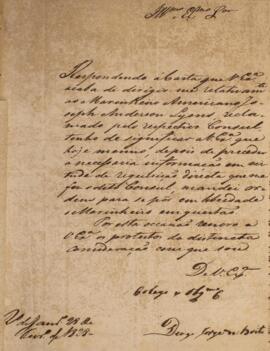 Illmo. Exmo. Snr.
Respondendo á Carta que V. Exa.
acaba de dirigir-me relativam.te
ao Marinheiro Americano Jo-
seph Anderson Lyons recla-
mado pelo respectivo Consul,
tenho de significar a V. Exa. que
hoje mesmo, depois de preceder
a necessaria informação em vir-
tude de requisição directa que me
fez o dito Consul, mandei or-
dem para se pôr em liberdade
o Marinheiro em questão.
Por esta occasião renovo a
V. Exa. os protestos da distincta
consideração com que sou
De V. Exa.
Collega e
28 de
de 1838
Diogo Jorge de Brito